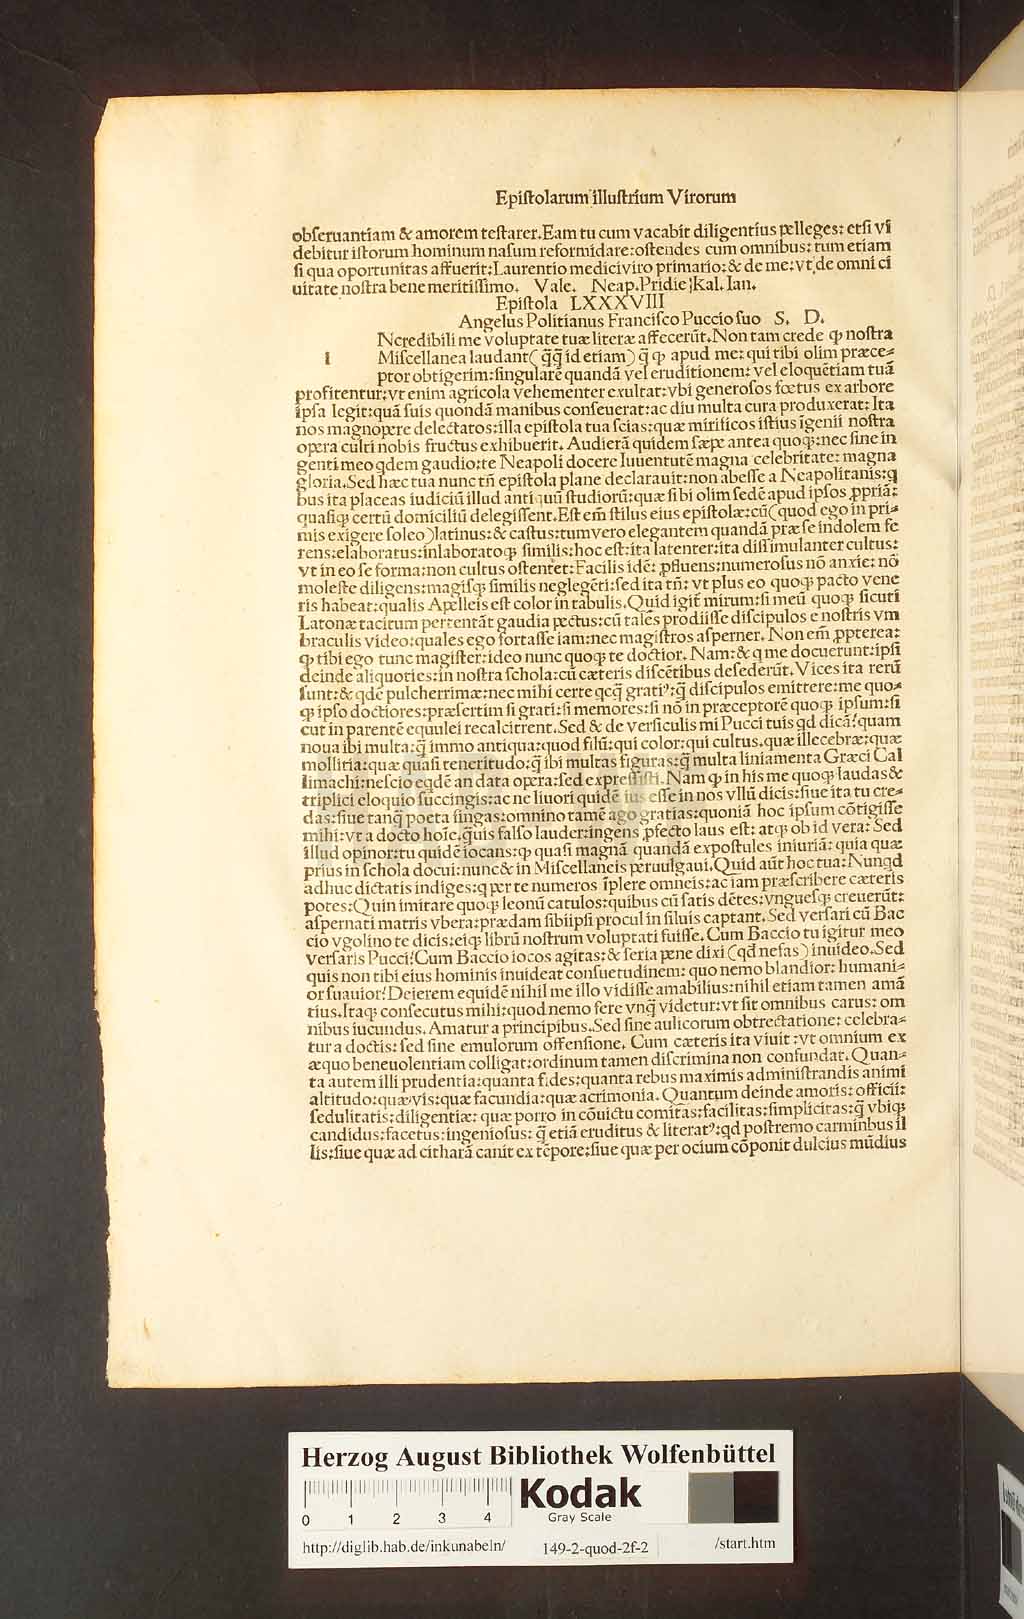 Epistolarum illustrium Virorum
obseruantiam & amorem testarer. Eam tu cum vacabit diligentius pelleges: etsi vi
debitur istorum hominum nasum reformidare: ostendes cum omnibus: tum etiam
si qua oportunitas affuerit: Laurentio mediciviro primario: & de me: vt de omni ci
uitate nostra bene meritissimo. Vale. Neap. Pridie Kal. Ian.
Epistola LXXXVIII
Angelus Politianus Francisco Puccio suo S. D.
Ncredibili me voluptate tuæ literæ affecerūt. Non tam crede ꝙ nostra
i Miscellanea laudant (q̄q̄ id etiam) q̄ ꝙ apud me: qui tibi olim præce-
ptor obtigerim: singularē quandā vel eruditionem: vel eloquētiam tuā
profitentur: vt enim agricola vehementer exultat: vbi generosos fœtus ex arbore
ipsa legit: quā suis quondā manibus conseuerat: ac diu multa cura produxerat: Ita
nos magnopere delectatos: illa epistola tua scias: quæ mirificos istius īgenii nostra
opera culti nobis fructus exhibuerit. Audierā quidem sæpe antea quoq;: nec sine in
genti meo qdem gaudio: te Neapoli docere Iuuentutē magna celebritate: magna
gloria. Sed hæc tua nunc tn̄ epistola plane declarauit: non abesse a Neapolitanis: q
bus ita placeas iudiciū illud antiquū studiorū: quæ sibi olim sedē apud ipsos ꝓpriā:
quasiq; certū domiciliū delegissent. Est em̄ stilus eius epistolæ: cū (quod ego in pri-
mis exigere soleo) latinus: & castus: tum vero elegantem quandā præ se indolem fe
rens: elaboratus: inlaboratoq; similis: hoc est: ita latenter: ita dissimulanter cultus:
vt in eo se forma: non cultus ostentet: Facilis idē: ꝓfluens: numerosus nō anxie: nō
moleste diligens: magisq; similis neglegēti: sed ita tn̄: vt plus eo quoq; pacto vene
ris habeat: qualis Apelleis est color in tabulis. Quid igit̄ mirum: si meū quoq; sicuti
Latonæ tacitum pertentāt gaudia pectus: cū tales prodiisse discipulos e nostris vm
braculis video: quales ego fortasse iam: nec magistros asperner. Non em̄ ꝓpterea:
ꝙ tibi ego tunc magister: ideo nunc quoq; te doctior. Nam: & q me docuerunt: ipsi
deinde aliquoties: in nostra schola: cū cæteris discētibus desederūt. Vices ita rerū
sunt: & qdē pulcherrimæ: nec mihi certe qcq̄ gratiꝰ: q̄ discipulos emittere: me quo-
q; ipso doctiores: præsertim si grati: si memores: si nō in præceptorē quoq; ipsum: si
cut in parentē equulei recalcitrent. Sed & de versiculis mi Pucci tuis qd dicā? quam
noua ibi multa: q̄ immo antiqua: quod filū: qui color: qui cultus, quæ illecebræ: quæ
mollitia: quæ quasi teneritudo: q̄ ibi multas figuras: q̄ multa liniamenta Græci Cal
limachi: nescio eqdē an data opera: sed expressisti. Nam ꝙ in his me quoq; laudas &
triplici eloquio succingis: ac ne liuori quidē ius esse in nos vllū dicis: siue ita tu cre-
das: siue tanq̄ poeta fingas: omnino tamē ago gratias: quoniā hoc ipsum cōtigisse
mihi: vt a docto hoīe, q̄uis falso lauder: ingens ꝓfecto laus est: atq; ob id vera: Sed
illud opinor: tu quidē iocans: ꝙ quasi magnā quandā expostules iniuriā: quia quæ
prius in schola docui: nunc & in Miscellaneis peruulgaui. Quid aūt hoc tua: Nunqd
adhuc dictatis indiges: q per te numeros īplere omneis: ac iam præscribere cæteris
potes: Quin imitare quoq; leonū catulos: quibus cū satis dētes: vnguesq; creuerūt:
aspernati matris vbera: prædam sibiipsi procul in siluis captant. Sed versari cū Bac
cio vgolino te dicis: eiq; librū nostrum voluptati fuisse. Cum Baccio tu igitur meo
versaris Pucci? Cum Baccio iocos agitas: & seria pene dixi (qd nefas) inuideo. Sed
quis non tibi eius hominis inuideat consuetudinem: quo nemo blandior: humani-
or suauior? Deierem equidē nihil me illo vidisse amabilius: nihil etiam tamen amā
tius. Itaq; consecutus mihi: quod nemo fere vnq̄ videtur: vt sit omnibus carus: om
nibus iucundus. Amatur a principibus. Sed sine aulicorum obtrectatione: celebra-
tur a doctis: sed sine emulorum offensione. Cum cæteris ita viuit: vt omnium ex
æquo beneuolentiam colligat: ordinum tamen discrimina non confundat. Quan-
ta autem illi prudentia: quanta fides: quanta rebus maximis administrandis animi
altitudo: quæ vis: quæ facundia: quæ acrimonia. Quantum deinde amoris: officii:
sedulitatis: diligentiæ: quæ porro in cōuictu comitas: facilitas: simplicitas: q̄ vbiq;
candidus: facetus: ingeniosus: q̄ etiā eruditus & literatꝰ: qd postremo carminbus il
lis: siue quæ ad citharā canit ex tēpore: siue quæ per ocium cōponit dulcius mūdius
Herzog August Bibliothek Wolfenbüttel
0 1 2 3 4
Kodak
Gray Scale
http://diglib.hab.de/inkunabeln/ 149-2-quod-2f-2 /start.htm